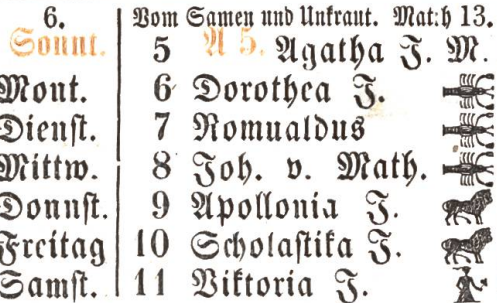 6. Vom Samen und Unkraut. Mat:h 13.
Sonnt. 5 A 5. Agatha J. M.
Mont. 6 Dorothea J.
Dienst. 7 Romualdus
Mittw. 8 Joh. v. Math.
Donnst. 9 Apollonia J.
Freitag 10 Scholastika J.
Samst. 11 Viktoria J.